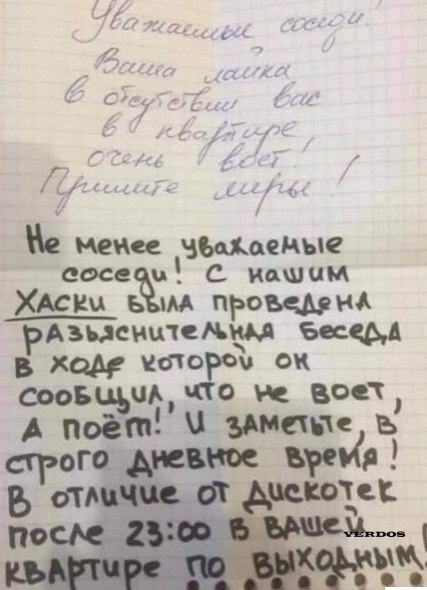 Уважаемые соседи!
Ваша лайка
в отсутствии вас
в квартире,
очень воет!
Примите меры!
Не менее уважаемые
соседи! С нашим
ХАСКИ была проведена
разьяснительная беседа
в ходе которой он
сообщил, что не воет,
а поёт! И заметьте, в
строго дневное время!
В отличие от дискотек
после 23:00 в вашей
VERDOS
квартире по выходным!